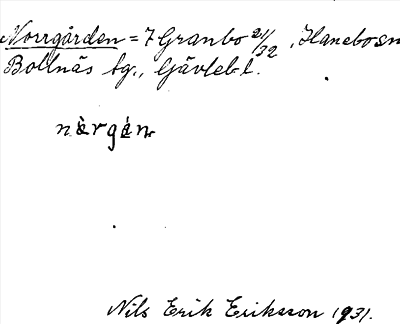 Norrgården = 7 Granbo 21/32, Hanebo sn
Bollnäs tg., Gävleb. l.
nèrgán
Nils Erik Eriksson 1931.